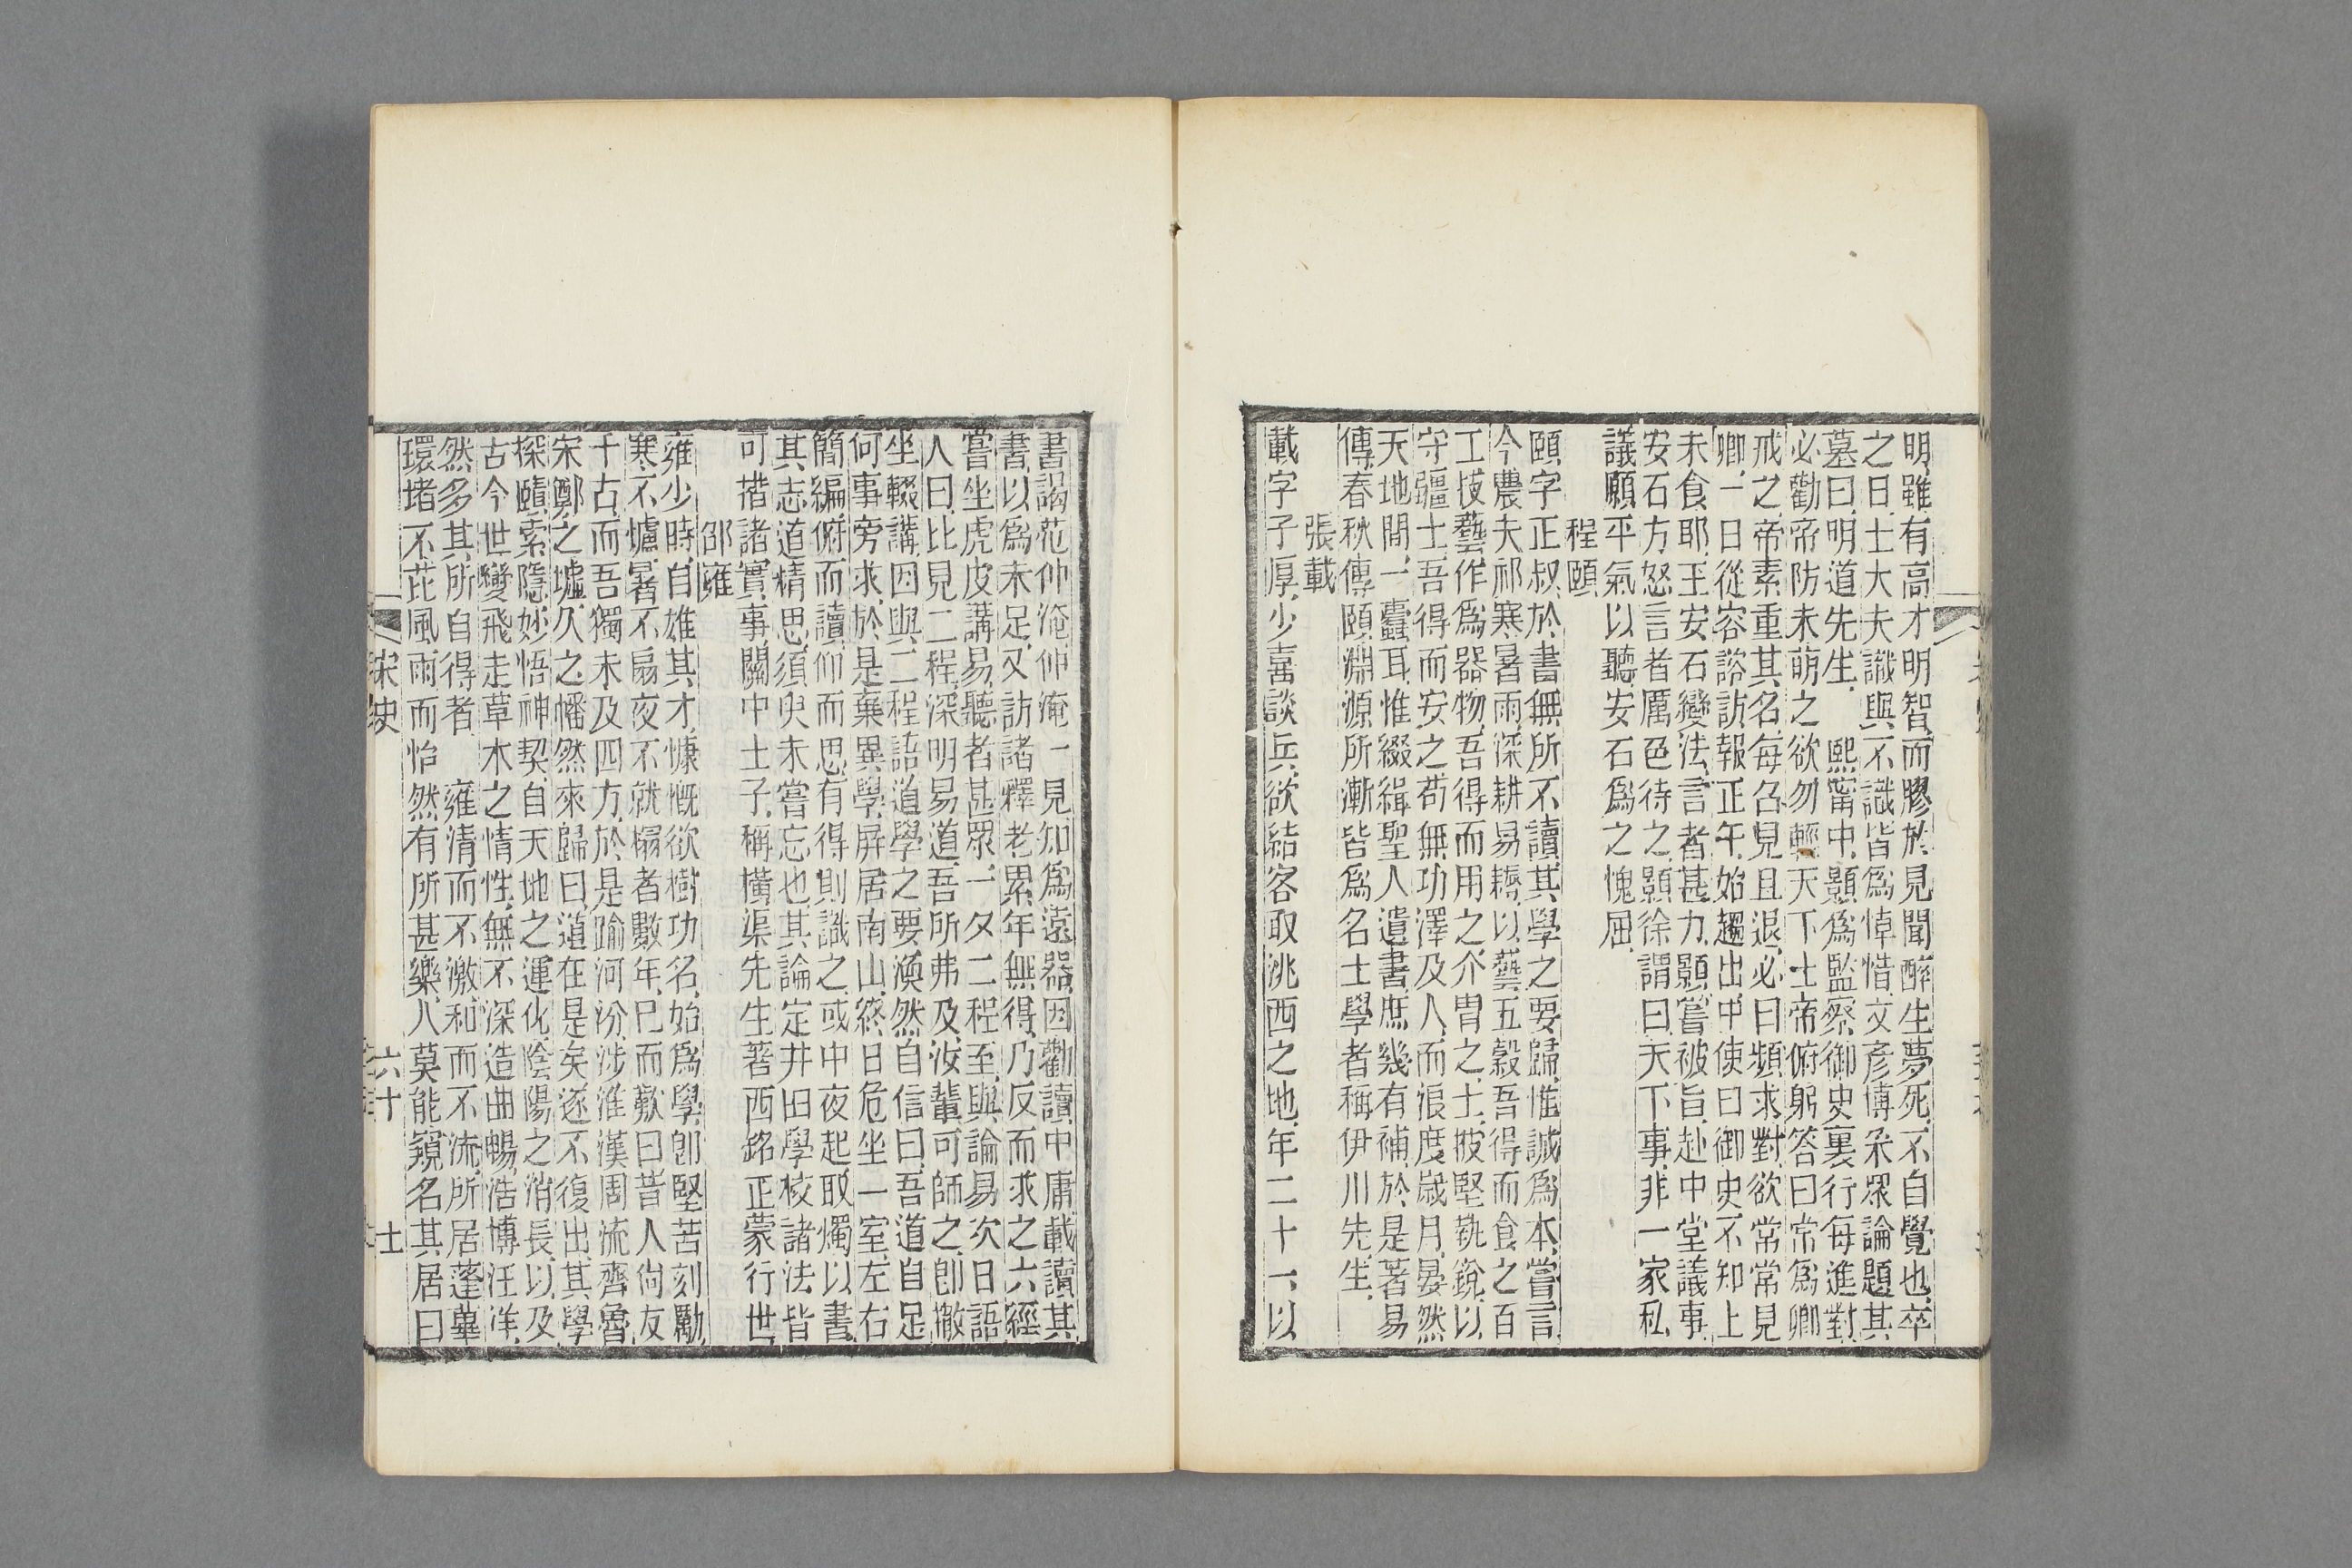 明雖有高才明智而膠於見聞醉生夢死不自覺也卒
之日士大夫識與不識皆爲悼惜文彥博采眾論題其
墓曰明道先生　熙甯中顥爲監察御史裏行每進對
必勸帝防未萌之欲勿輕天下士帝俯躬答曰常爲卿
戒之帝素重其名每召見且退必曰頻求對欲常常見
卿一日從容諮訪報正午始趨出中使曰御史不知上
未食耶王安石變法言者甚力顥嘗被旨赴中堂議事
安石方怒言者厲色待之顥徐謂曰天下事非一家私
議願平氣以聽安石爲之愧屈
程頤
頤字正叔於書無所不讀其學之要歸惟誠爲本嘗言
今農夫祁寒暑雨深耕易耨以藝五穀吾得而食之百
工技藝作爲器物吾得而用之介胄之士披堅執銳以
守疆土吾得而安之苟無功澤及人而浪度歲月晏然
天地間一蠹耳惟綴緝聖人遺書庶幾有補於是著易
傳春秋傳頤淵源所漸皆爲名士學者稱伊川先生
張載
載字子厚少喜談兵欲結客取洮西之地年二十一以
書謁范仲淹仲淹一見知爲遠器因勸讀中庸載讀其
書以爲未足又訪諸釋老累年無得乃反而求之六經
嘗坐虎皮講易聽者甚眾一夕二程至與論易次日語
人曰比見二程深明易道吾所弗及汝輩可師之卽撤
坐輟講因與二程語道學之要渙然自信曰吾道自足
何事旁求於是棄異學屏居南山終日危坐一室左右
簡編俯而讀仰而思有得則識之或中夜起取燭以書
其志道精思須臾未嘗忘也其論定井田學校諸法皆
可措諸實事關中士子稱橫渠先生著西銘正蒙行世
邵雍
雍少時自雄其才慷慨欲樹功名始爲學卽堅苦刻勵
寒不爐暑不扇夜不就榻者數年已而歎曰昔人尙友
千古而吾獨未及四方於是踰河汾涉淮漢周流齊魯
宋鄭之墟久之幡然來歸曰道在是矣遂不復出其學
探賾索隱妙悟神契自天地之運化陰陽之消長以及
古今世變飛走草木之情性無不深造曲暢浩博汪洋
然多其所自得者　雍清而不激和而不流所居蓬蓽
環堵不芘風雨而怡然有所甚樂人莫能窺名其居曰
宋史　六十　士